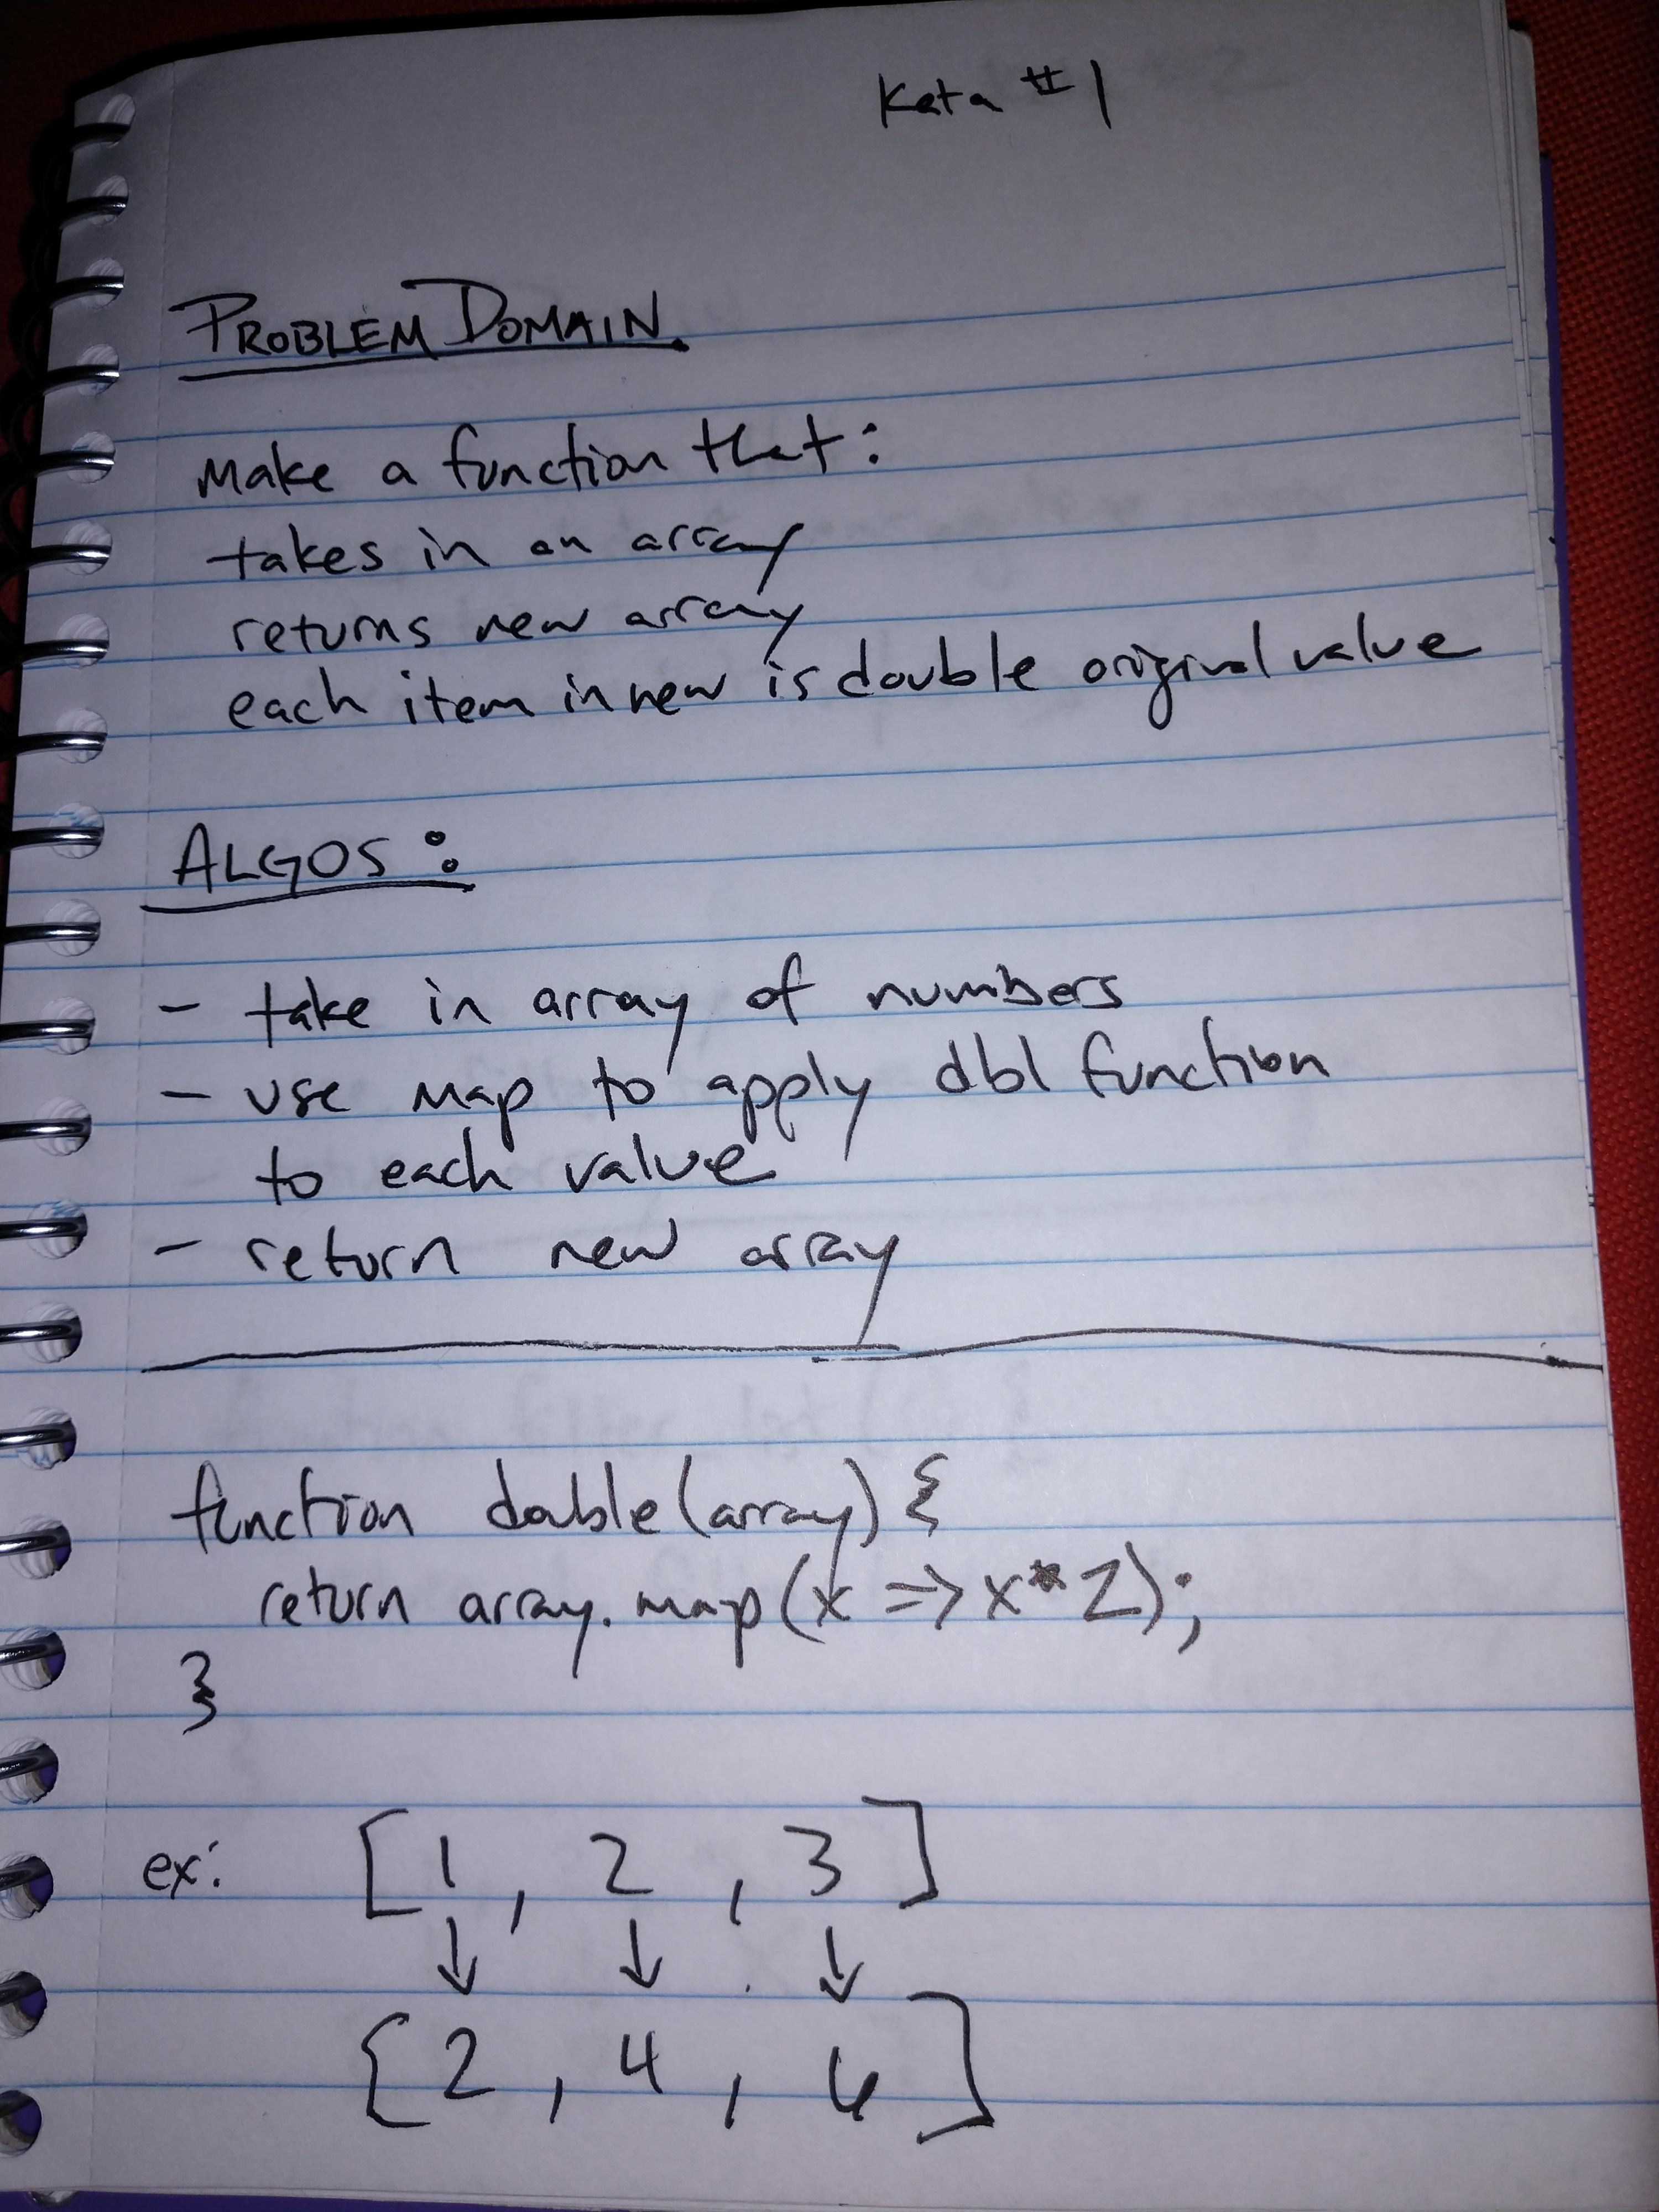 Kata #1
PROBLEM DOMAIN
Make a function that:
takes in an array
returns new array
each item in new is double original value
ALGOS:
- take in array of numbers
- use map to apply dbl function
to each value
- return new array
function double(array) {
return array.map(x => x*2);
}
ex: [1, 2, 3]
↓ ↓ ↓
[2, 4, 6]